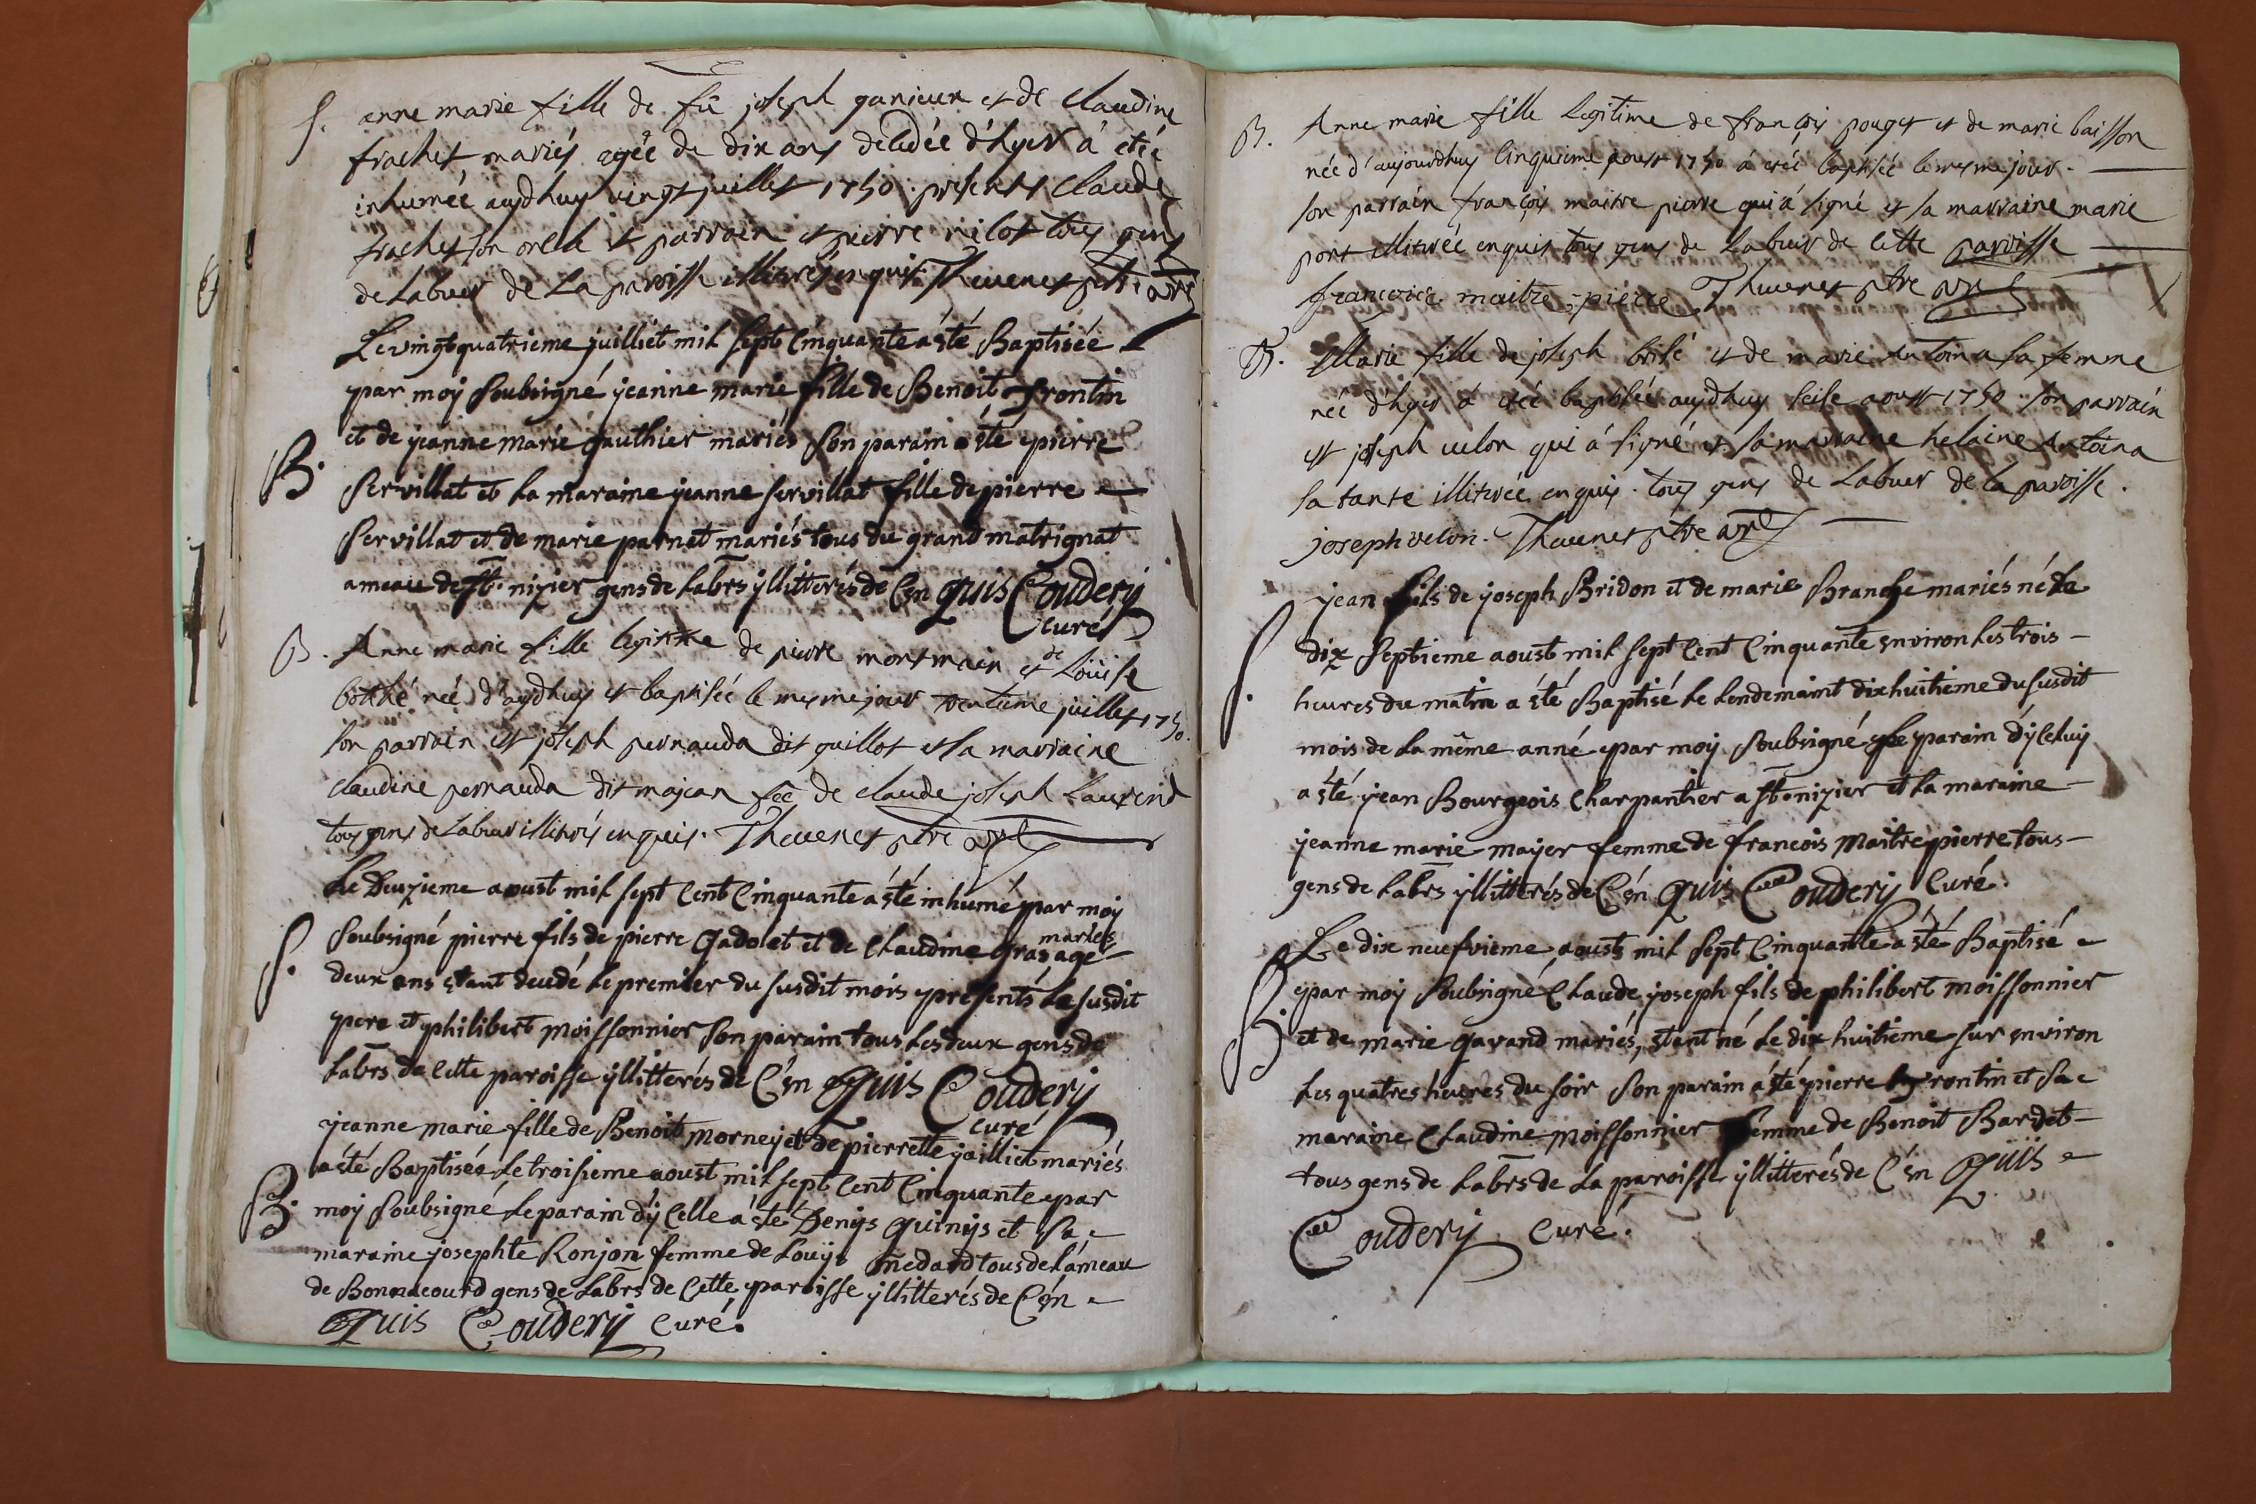 S. anne marie fille de fû joseph ganieux et de Claudine
frachet mariés agée de dix ans décédée d'hyer à etée
inhumée aujdhuy vingt juillet 1750. présents Claude
frachet son oncle et parrain et pierre nilot tous gens
de Labeur de La paroisse illitrés enquis. Thevenet ptre
Le vingt quatrieme juilliet mil sept Cinquante a été Baptisée
par moy soubsigné jeanne marie fille de Benoit frontin
et de jeanne marie gauthier mariés son parain a été pierre
B. Servillat et La maraine jeanne servillat fille de pierre
Servillat et de marie parnet mariés tous du grand matrignat
ameau de St. nizier gens de Labrs yllitterés de C'en quis Couderij
curé
B. Anne marie fille legitime de pierre montmain et de Loüise
bottké née d'aujdhuy et baptisée le mesme jour trentieme juillet 1750.
son parrain est joseph pernauda dit guillot et la marraine
Claudine pernauda dit majean fée de claude joseph Laurend
tous gens de Labeur illitrés enquis. Thevenet ptre
Le Deuzieme aoust mil sept Cent Cinquante a été inhumé par moy
S. soubsigné pierre fils de pierre gadolet et de Claudine gras mariés agé
deux ans etant decedé Le premier du susdit mois presents Le susdit
pere et philibert moissonnier son parain tous Les deux gens de
Labrs de Cette paroisse yllitterés de C'en quis Couderij
curé
jeanne marie fille de Benoit morney et de pierrette jailliet mariés
a été Baptisée Le troisieme aoust mil sept Cent Cinquante par
B. moy soubsigné, Le parain d'y Celle a été Denijs guinijs et sa
maraine josephte Ronjon femme de Louÿs medard tous de L'ameau
de Bonnacourd gens de Labrs de Cette paroisse yllitterés de C'en
quis Couderij Curé.
B. Anne marie fille Legitime de françois pouget et de marie baisson
née d'aujourdhuy Cinquieme aoust 1750 à etée baptisée le mesme jour.
son parrain françois maitre pierre qui à signé et sa marraine marie
pont illitrée enquis tous gens de Labeur de Cette paroisse
françois maitre-pierre Thevenet ptre
B. Marie fille de joseph brisé et de marie Antoina sa femme
née d'hyer à etée baptisée aujdhuy seise aoust 1750. son parrain
est joseph velon qui à signé et sa marraine helaine Antoina
sa tante illitrée enquis. tous gens de Labeur de la paroisse.
joseph velon. Thevenet ptre
jean fils de joseph Bridon et de marie Branche mariés né Le
dix septieme aoust mil sept Cent Cinquante environ Les trois
S. heures du matin a été Baptisé Le Lendemaint dixhuitieme du susdit
mois de La même anné par moy soubsigné Le parain d'y Celuy
a été jean Bourgeois Charpantier a St nizier et La maraine
jeanne marie mayer femme de francois maitrepierre tous
gens de Labrs yllitterés de C'en quis Couderij Curé.
Le dix neufvieme aoust mil sept Cinquante a été Baptisé
B. par moy soubsigné Claude joseph fils de philibert moissonnier
et de marie gavand mariés, etant né Le dix huitieme sur environ
Les quatres heures du soir son parain a été pierre frontin et sa
maraine Claudine moissonnier femme de Benoit Bardet
tous gens de Labrs de La paroisse yllitterés de C'en quis
Couderij Curé.